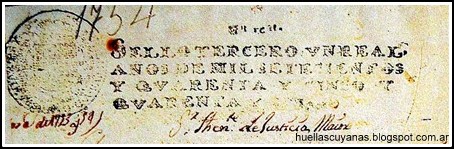 1754
Un real.
SELLO TERCERO, VN REAL
AÑOS DE MIL SETECIENTOS
Y QVARENTA Y CINCO Y
QVARENTA Y
de Justicia Maior
huellascuyanas.blogspot.com.ar